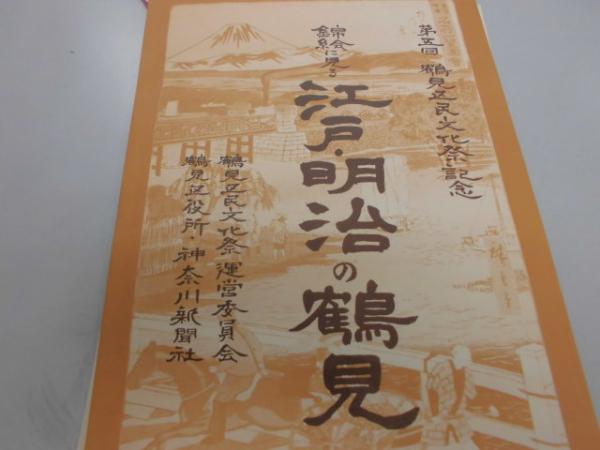 第五回 鶴見区民文化祭記念
錦絵に見る
江戸・明治の鶴見
鶴見区民文化祭運営委員会
鶴見区役所・神奈川新聞社